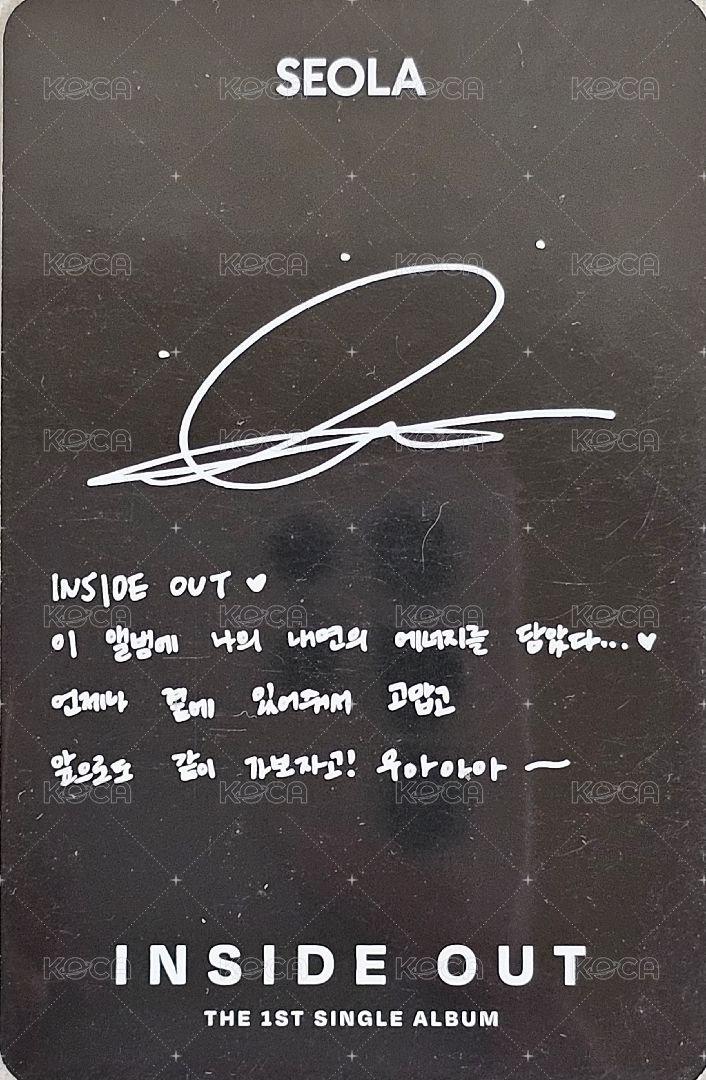 SEOLA
INSIDE OUT ♥
이 앨범에 나의 내면의 에너지를 담았다...♥
언제나 곁에 있어줘서 고맙고
앞으로도 같이 가보자고! 우아아아 ~
INSIDE OUT
THE 1ST SINGLE ALBUM
KOCA